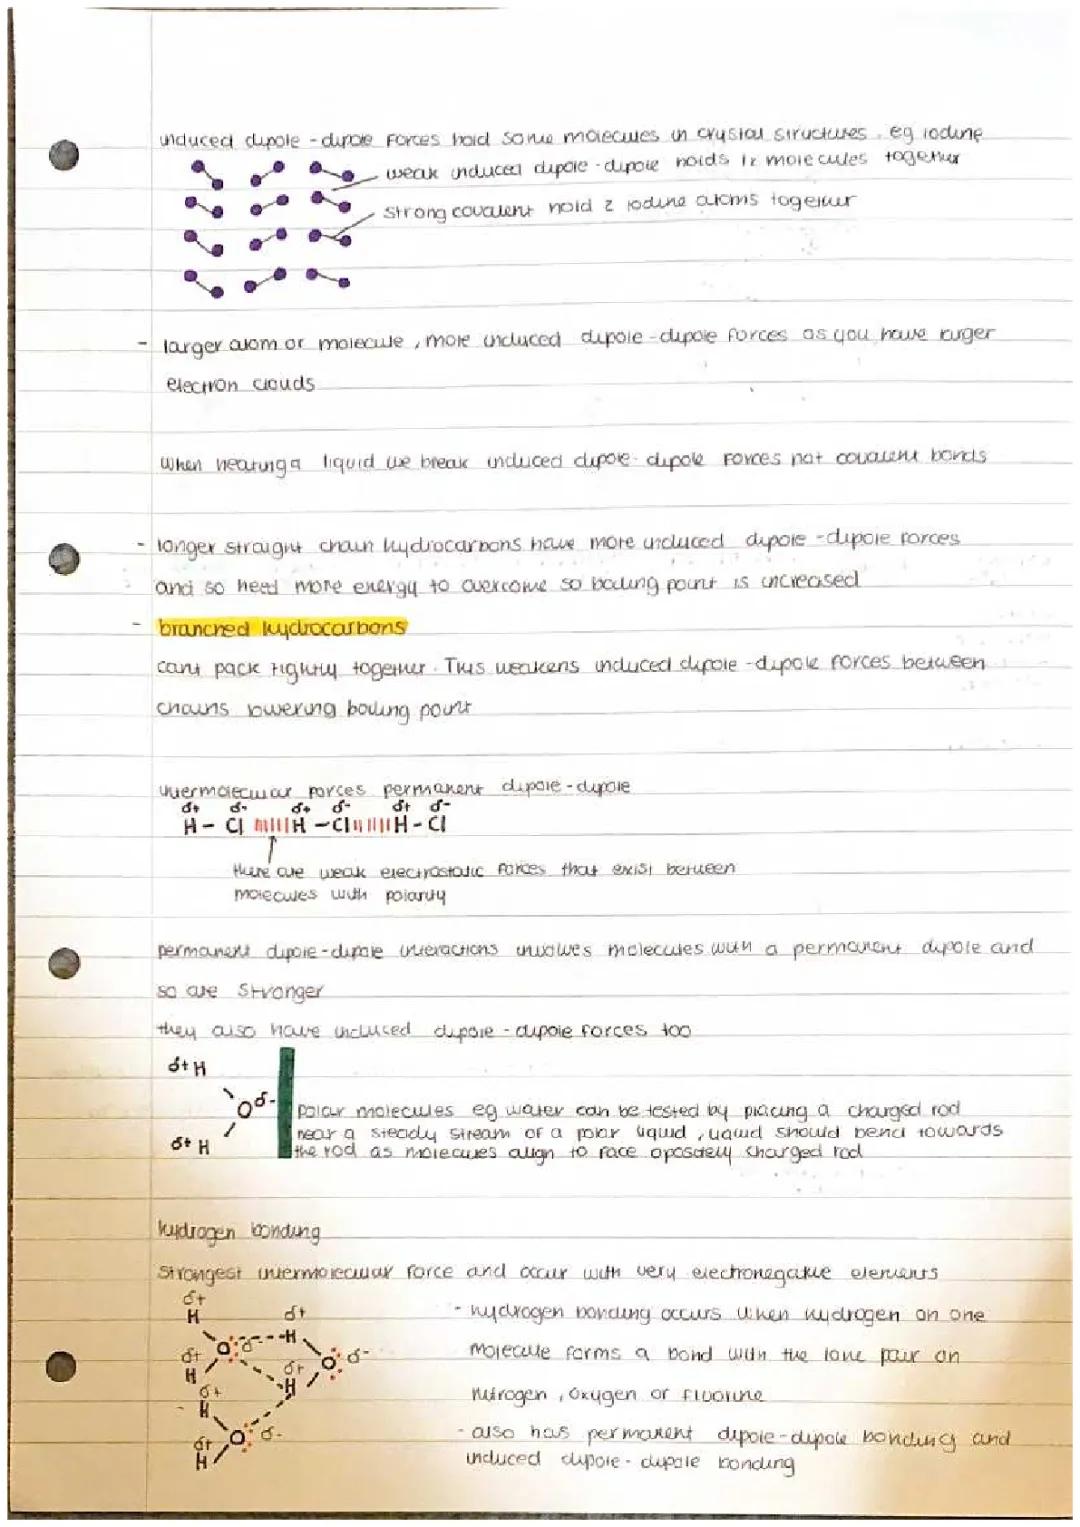 induced dipole-dipole forces hold some molecules in crystal structures. eg iodine
weak induced dipole-dipole holds I2 molecules together
strong covalent hold 2 iodine atoms together
- larger atom or molecule, more induced dipole-dipole forces as you have larger
electron clouds
when heating a liquid we break induced dipole-dipole forces not covalent bonds
- longer straight chain hydrocarbons have more induced dipole-dipole forces
and so need more energy to overcome so boiling point is increased
- branched hydrocarbons
cant pack tightly together. This weakens induced dipole-dipole forces between
chains lowering boiling point
intermolecular forces permanent dipole-dipole
δ+ δ- δ+ δ- δ+ δ-
H - Cl H - Cl H - Cl
there are weak electrostatic forces that exist between
molecules with polarity
permanent dipole-dipole interactions involves molecules with a permanent dipole and
so are stronger
they also have induced dipole-dipole forces too
δ+ H
O δ-
δ+ H
polar molecules eg water can be tested by placing a charged rod
near a steady stream of a polar liquid, liquid should bend towards
the rod as molecules align to face opositely charged rod
hydrogen bonding
strongest intermolecular force and occur with very electronegative elements
δ+
H δ+
O δ- H
δ+ O δ-
H δ+
δ+ H
H
O δ-
δ+
H
- hydrogen bonding occurs when hydrogen on one
molecule forms a bond with the lone pair on
nitrogen, oxygen or fluorine
- also has permanent dipole-dipole bonding and
induced dipole-dipole bonding